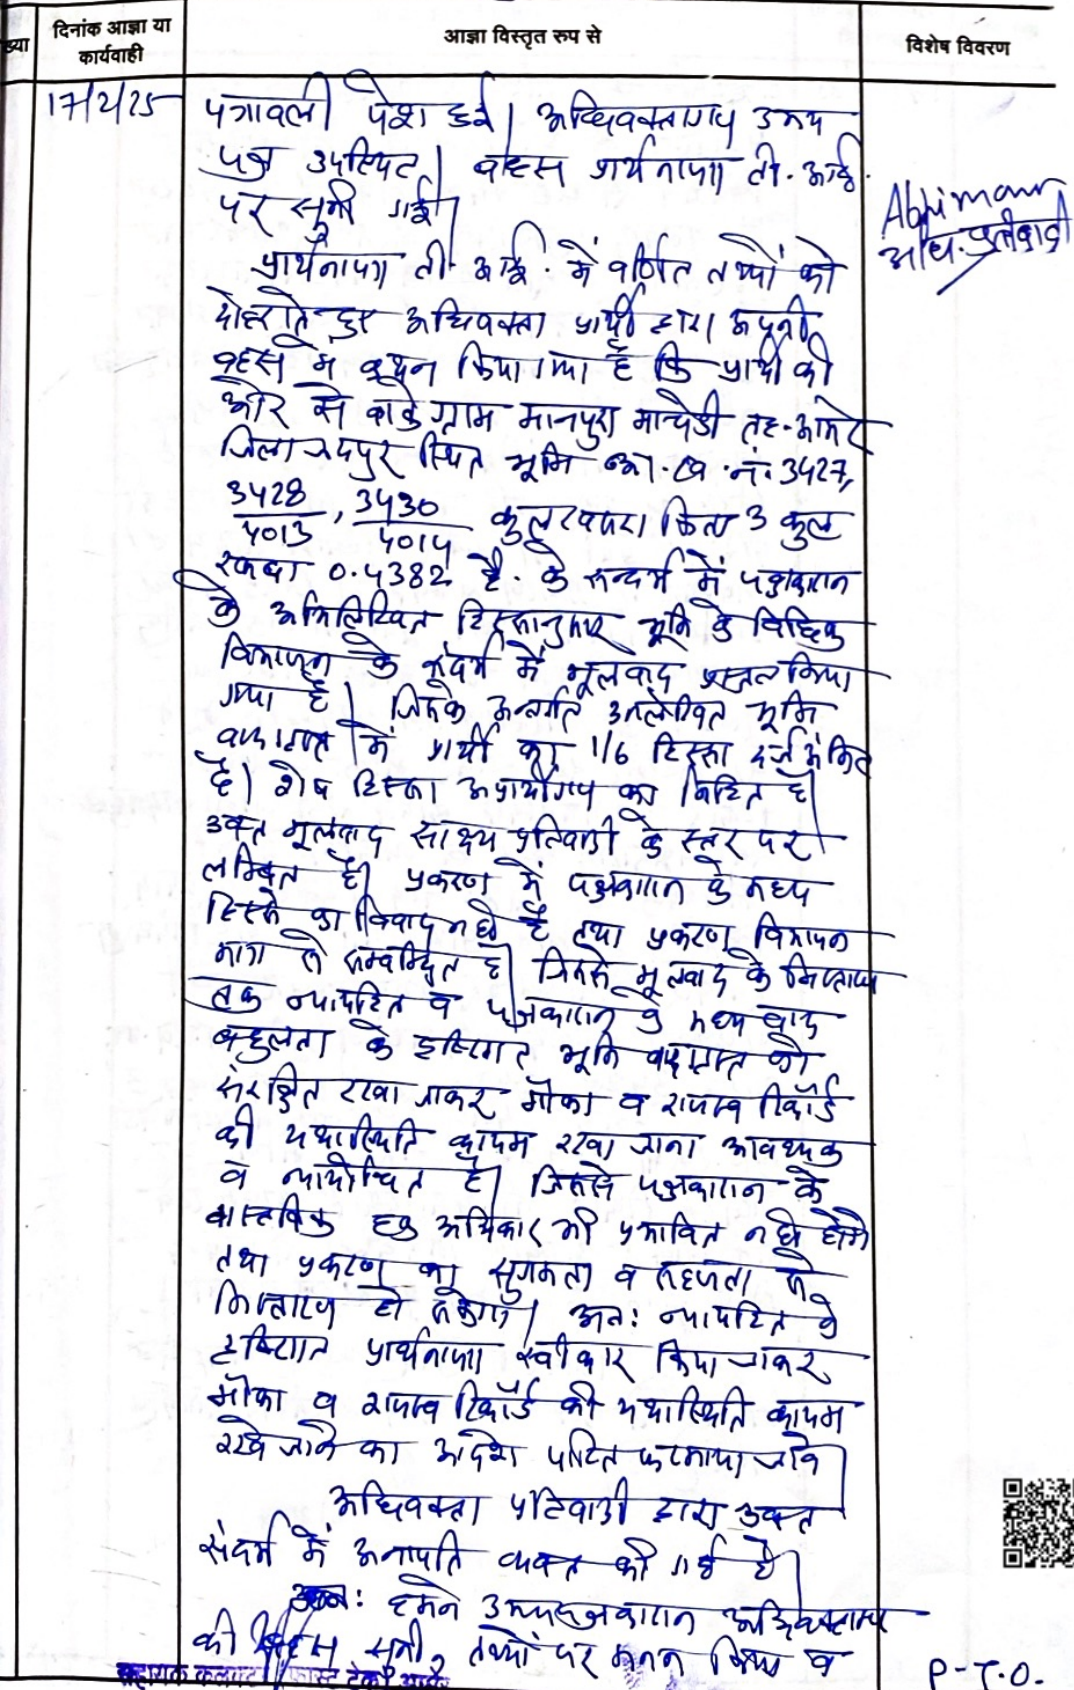 ख्या
दिनांक आज्ञा या
कार्यवाही
आज्ञा विस्तृत रुप से
विशेष विवरण
17/2/25
पत्रावली पेश हुई। अधिवक्तागण उभय
पक्ष उपस्थित। बहस प्रार्थनापत्र टी.आई.
पर सुनी गई।
प्रार्थनापत्र टी.आई. में वर्णित तथ्यों को
दोहराते हुए अधिवक्ता प्रार्थी द्वारा अपनी
बहस में कथन किया गया है कि प्रार्थी की
ओर से वाके ग्राम मानपुरा माचेडी तह. आमेर
जिला जयपुर स्थित भूमि आ.ख.नं. 3427,
3428/4013, 3430/4014 कुल खसरा किता 3 कुल
रकबा 0.4382 है. के सन्दर्भ में पक्षकारान
के अभिलिखित हिस्सानुसार भूमि के विधिक
विभाजन के संदर्भ में मूलवाद प्रस्तुत किया
गया है। जिसके अन्तर्गत उल्लेखित भूमि
वादग्रस्त में प्रार्थी का 1/6 हिस्सा दर्ज अंकित
है। शेष हिस्सा अप्रार्थीगण का निहित है।
उक्त मूलवाद साक्ष्य प्रतिवादी के स्तर पर
लम्बित है। प्रकरण में पक्षकारान के मध्य
हिस्से का विवाद नही है तथा प्रकरण विभाजन
मात्र से सम्बन्धित है। जिससे मूलवाद के निस्तारण
तक न्यायहित व पक्षकारान के मध्य वाद
बहुलता के दृष्टिगत भूमि वादग्रस्त को
संरक्षित रखा जाकर मौका व राजस्व रिकॉर्ड
की यथास्थिति कायम रखा जाना आवश्यक
व न्यायोचित है। जिससे पक्षकारान के
वास्तविक हक अधिकार भी प्रभावित नही होंगे
तथा प्रकरण का सुगमता व सहजता से
निस्तारण हो सकेगा। अतः न्यायहित के
दृष्टिगत प्रार्थनापत्र स्वीकार किया जाकर
मौका व राजस्व रिकॉर्ड की यथास्थिति कायम
रखे जाने का आदेश पारित फरमाया जावे।
अधिवक्ता प्रतिवादी द्वारा उक्त
संदर्भ में अनापत्ति व्यक्त की गई है।
अतः हमने उभयपक्षकारान अधिवक्तागण
की बहस सुनी, तथ्यों पर मनन किया व
Abhimanu
अधि. प्रतिवादी
सहायक कलक्टर फास्ट ट्रेक आमेर
P-T.O.